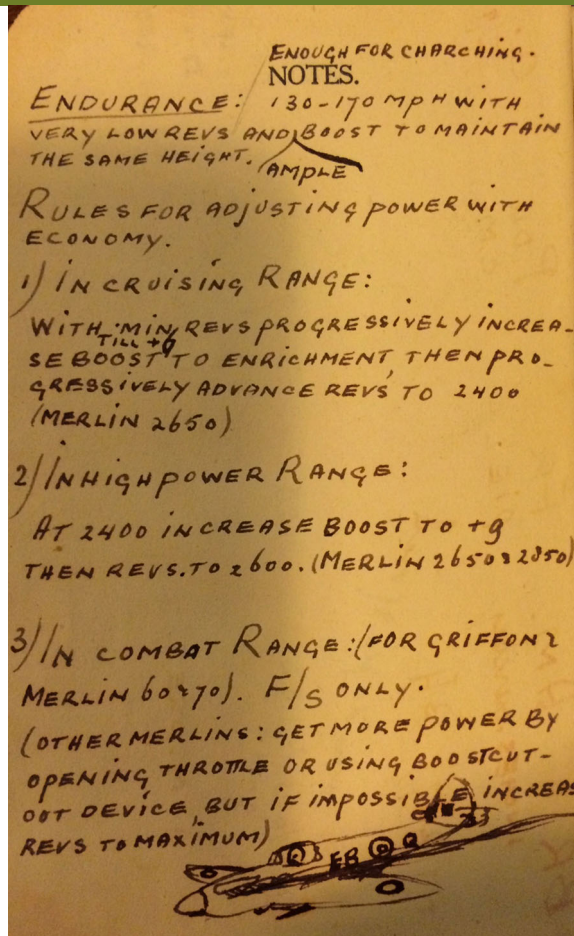 ENOUGH FOR CHARCHING.
NOTES.
ENDURANCE: 130-170 MPH WITH
VERY LOW REVS AND BOOST TO MAINTAIN
THE SAME HEIGHT.
AMPLE
RULES FOR ADJUSTING POWER WITH
ECONOMY.
1) IN CRUISING RANGE:
WITH MIN. REVS PROGRESSIVELY INCREA-
TILL +6
SE BOOST TO ENRICHMENT, THEN PRO-
GRESSIVELY ADVANCE REVS TO 2400
(MERLIN 2650)
2) IN HIGH POWER RANGE:
AT 2400 INCREASE BOOST TO +9
THEN REVS. TO 2600. (MERLIN 2650 & 2850)
3) IN COMBAT RANGE: (FOR GRIFFON &
MERLIN 60 & 70). F/S ONLY.
(OTHER MERLINS: GET MORE POWER BY
OPENING THROTTLE OR USING BOOSTCUT-
OUT DEVICE, BUT IF IMPOSSIBLE INCREAS
REVS TO MAXIMUM)